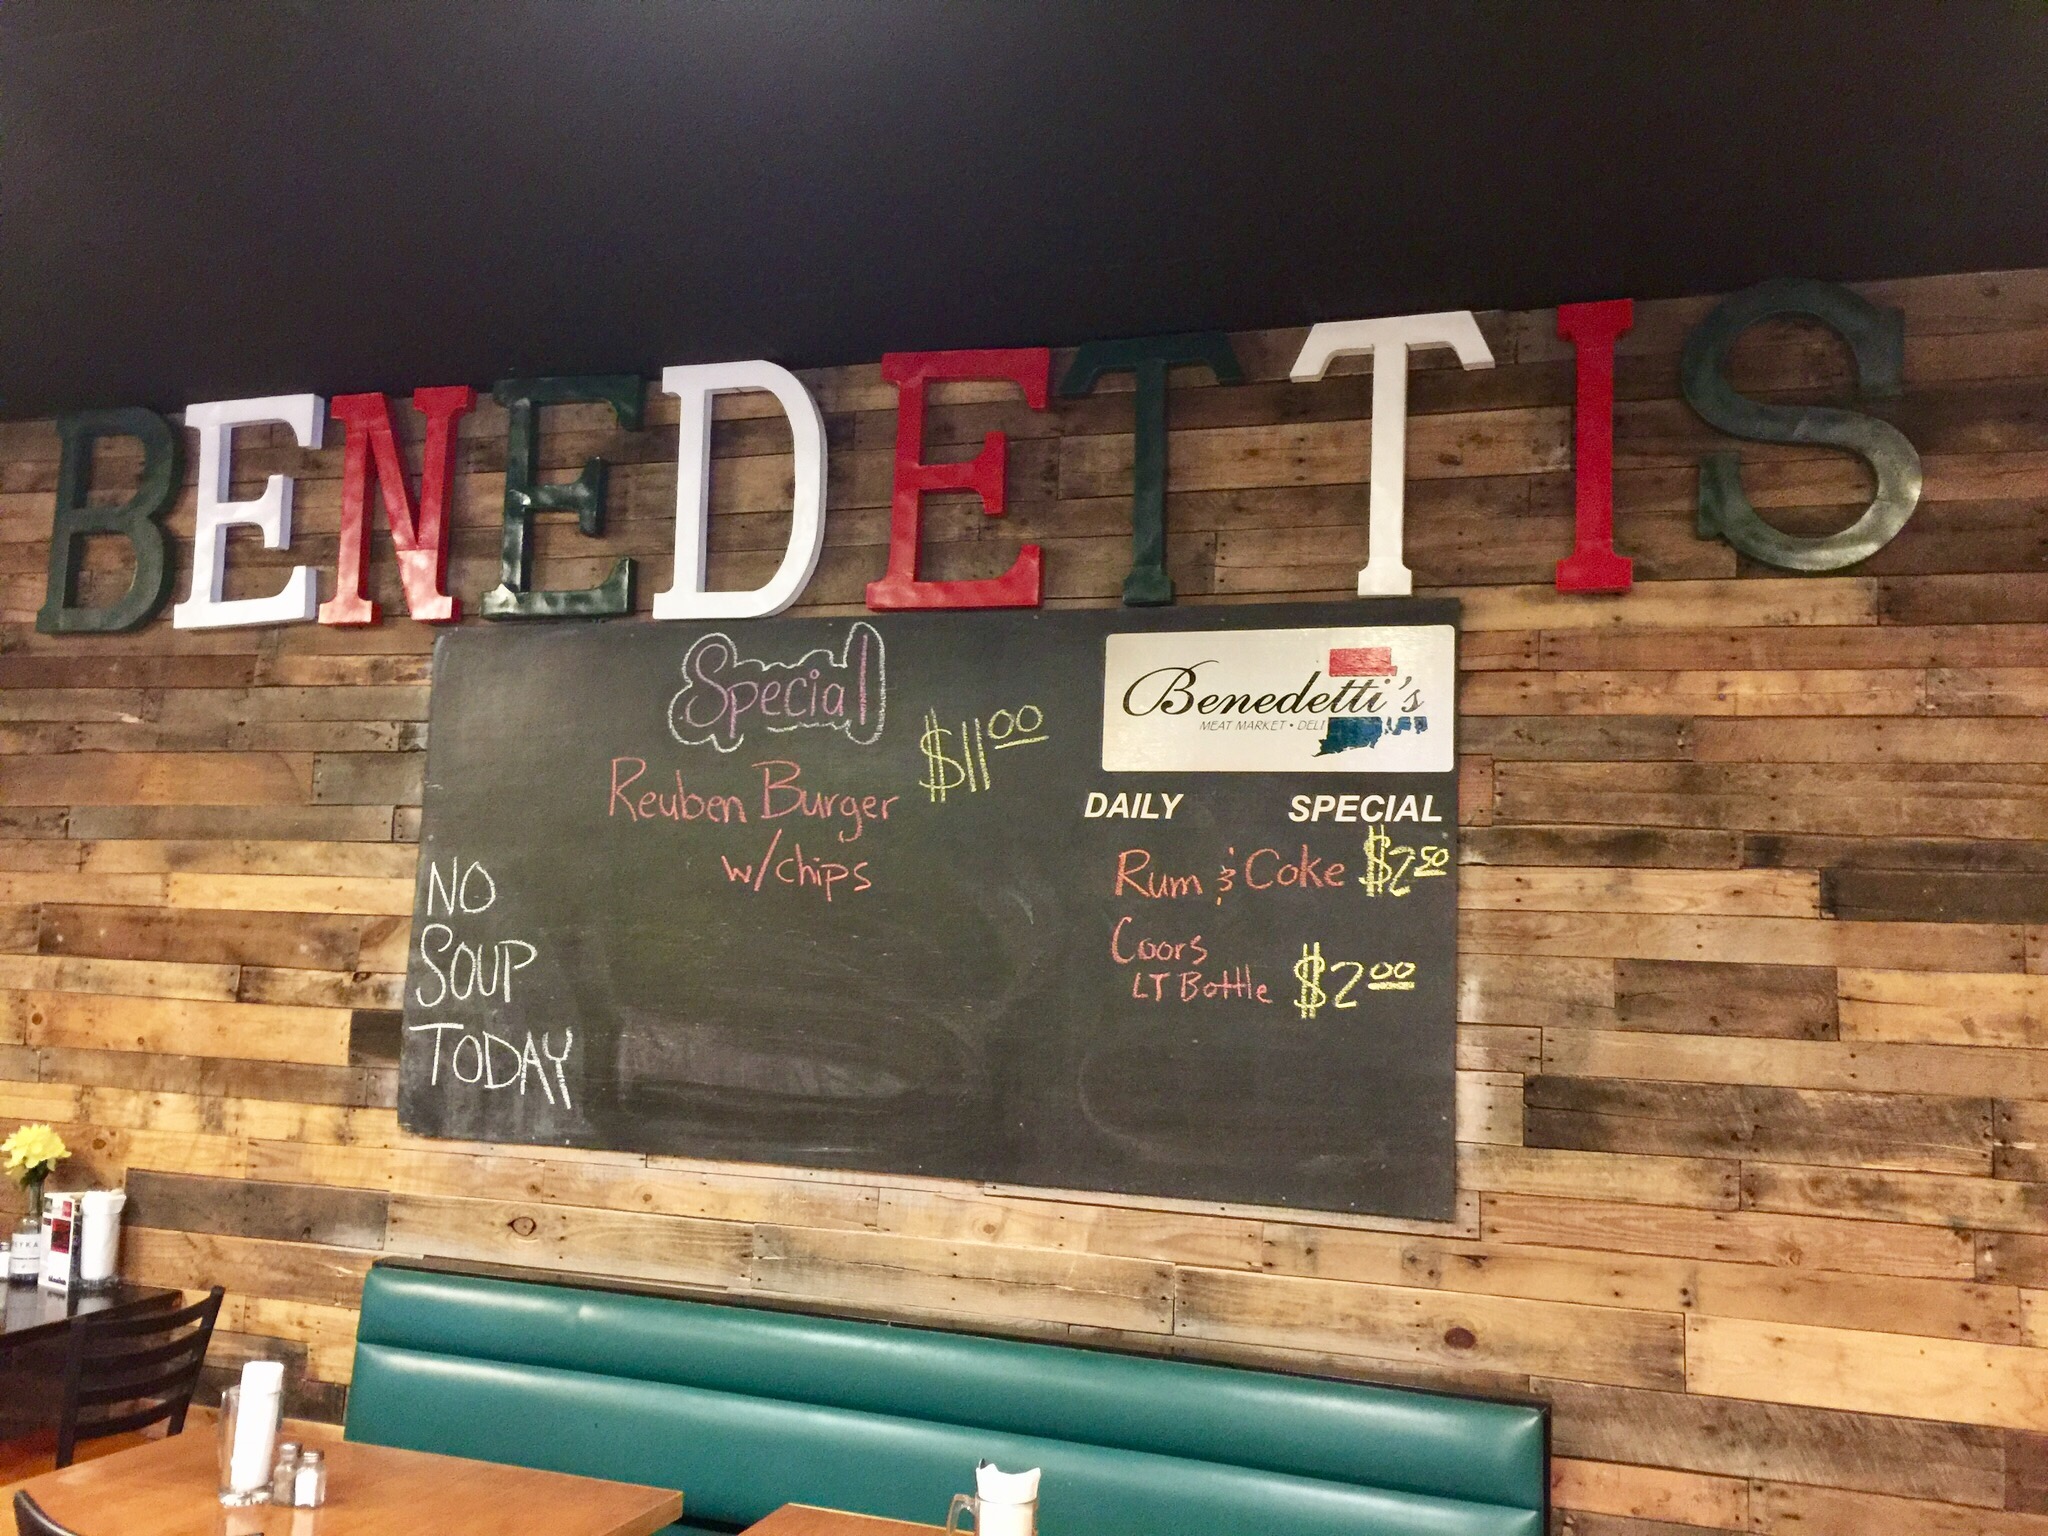 BENEDETTIS
Special
Reuben Burger $11.00
w/chips
NO
SOUP
TODAY
Benedetti's
MEAT MARKET • DELI
DAILY SPECIAL
Rum & Coke $2.50
Coors
LT Bottle $2.00